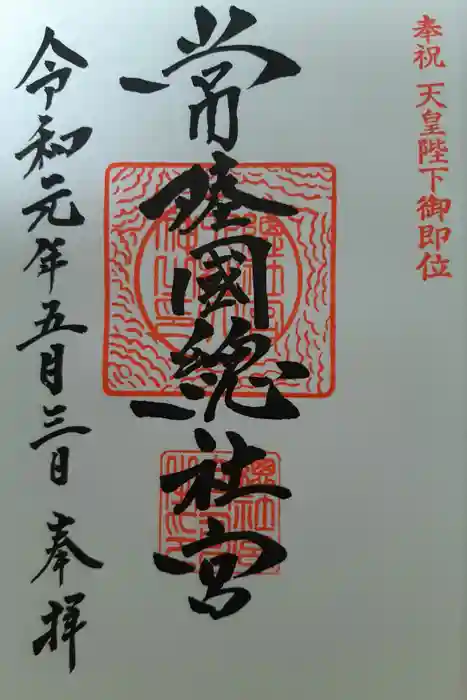 奉祝 天皇陛下御即位
常陸國總社宮
令和元年五月三日 奉拝